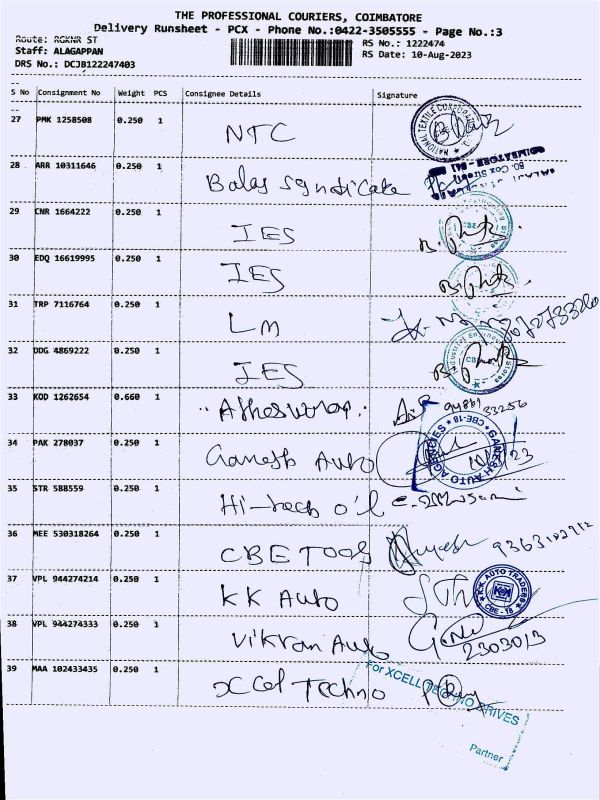 THE PROFESSIONAL COURIERS, COIMBATORE
Delivery Runsheet - PCX - Phone No.:0422-3505555 - Page No.:3
Route: RGKNR ST
RS No.: 1222474
Staff: ALAGAPPAN
RS Date: 10-Aug-2023
DRS No.: DCJB122247403
S No Consignment No Weight PCS Consignee Details Signature
27 PMK 1258508 0.250 1 NTC
NATIONAL TEXTILE CORPORATION
28 ARR 10311646 0.250 1 Balaji Syndicate
COIMBATORE
80, Cox Street
29 CNR 1664222 0.250 1 IES
30 EDQ 16619995 0.250 1 IES
31 TRP 7116764 0.250 1 LM
32 DDG 4869222 0.250 1 IES
Industrial Engineering Stores
CBE
33 KOD 1262654 0.660 1
34 PAK 278037 0.250 1 Ganesh Auto
GANESH AUTO AGENCIES CBE-18
35 STR 588559 0.250 1 Hi-tech oil
36 MEE 530318264 0.250 1 CBE TOOLS
37 VPL 944274214 0.250 1 KK Auto
K.K. AUTO TRADERS
CBE - 18
38 VPL 944274333 0.250 1 Vikran Auto
2303013
39 MAA 102433435 0.250 1 Xcel Techno
For XCELL TECHNO DRIVES
Partner